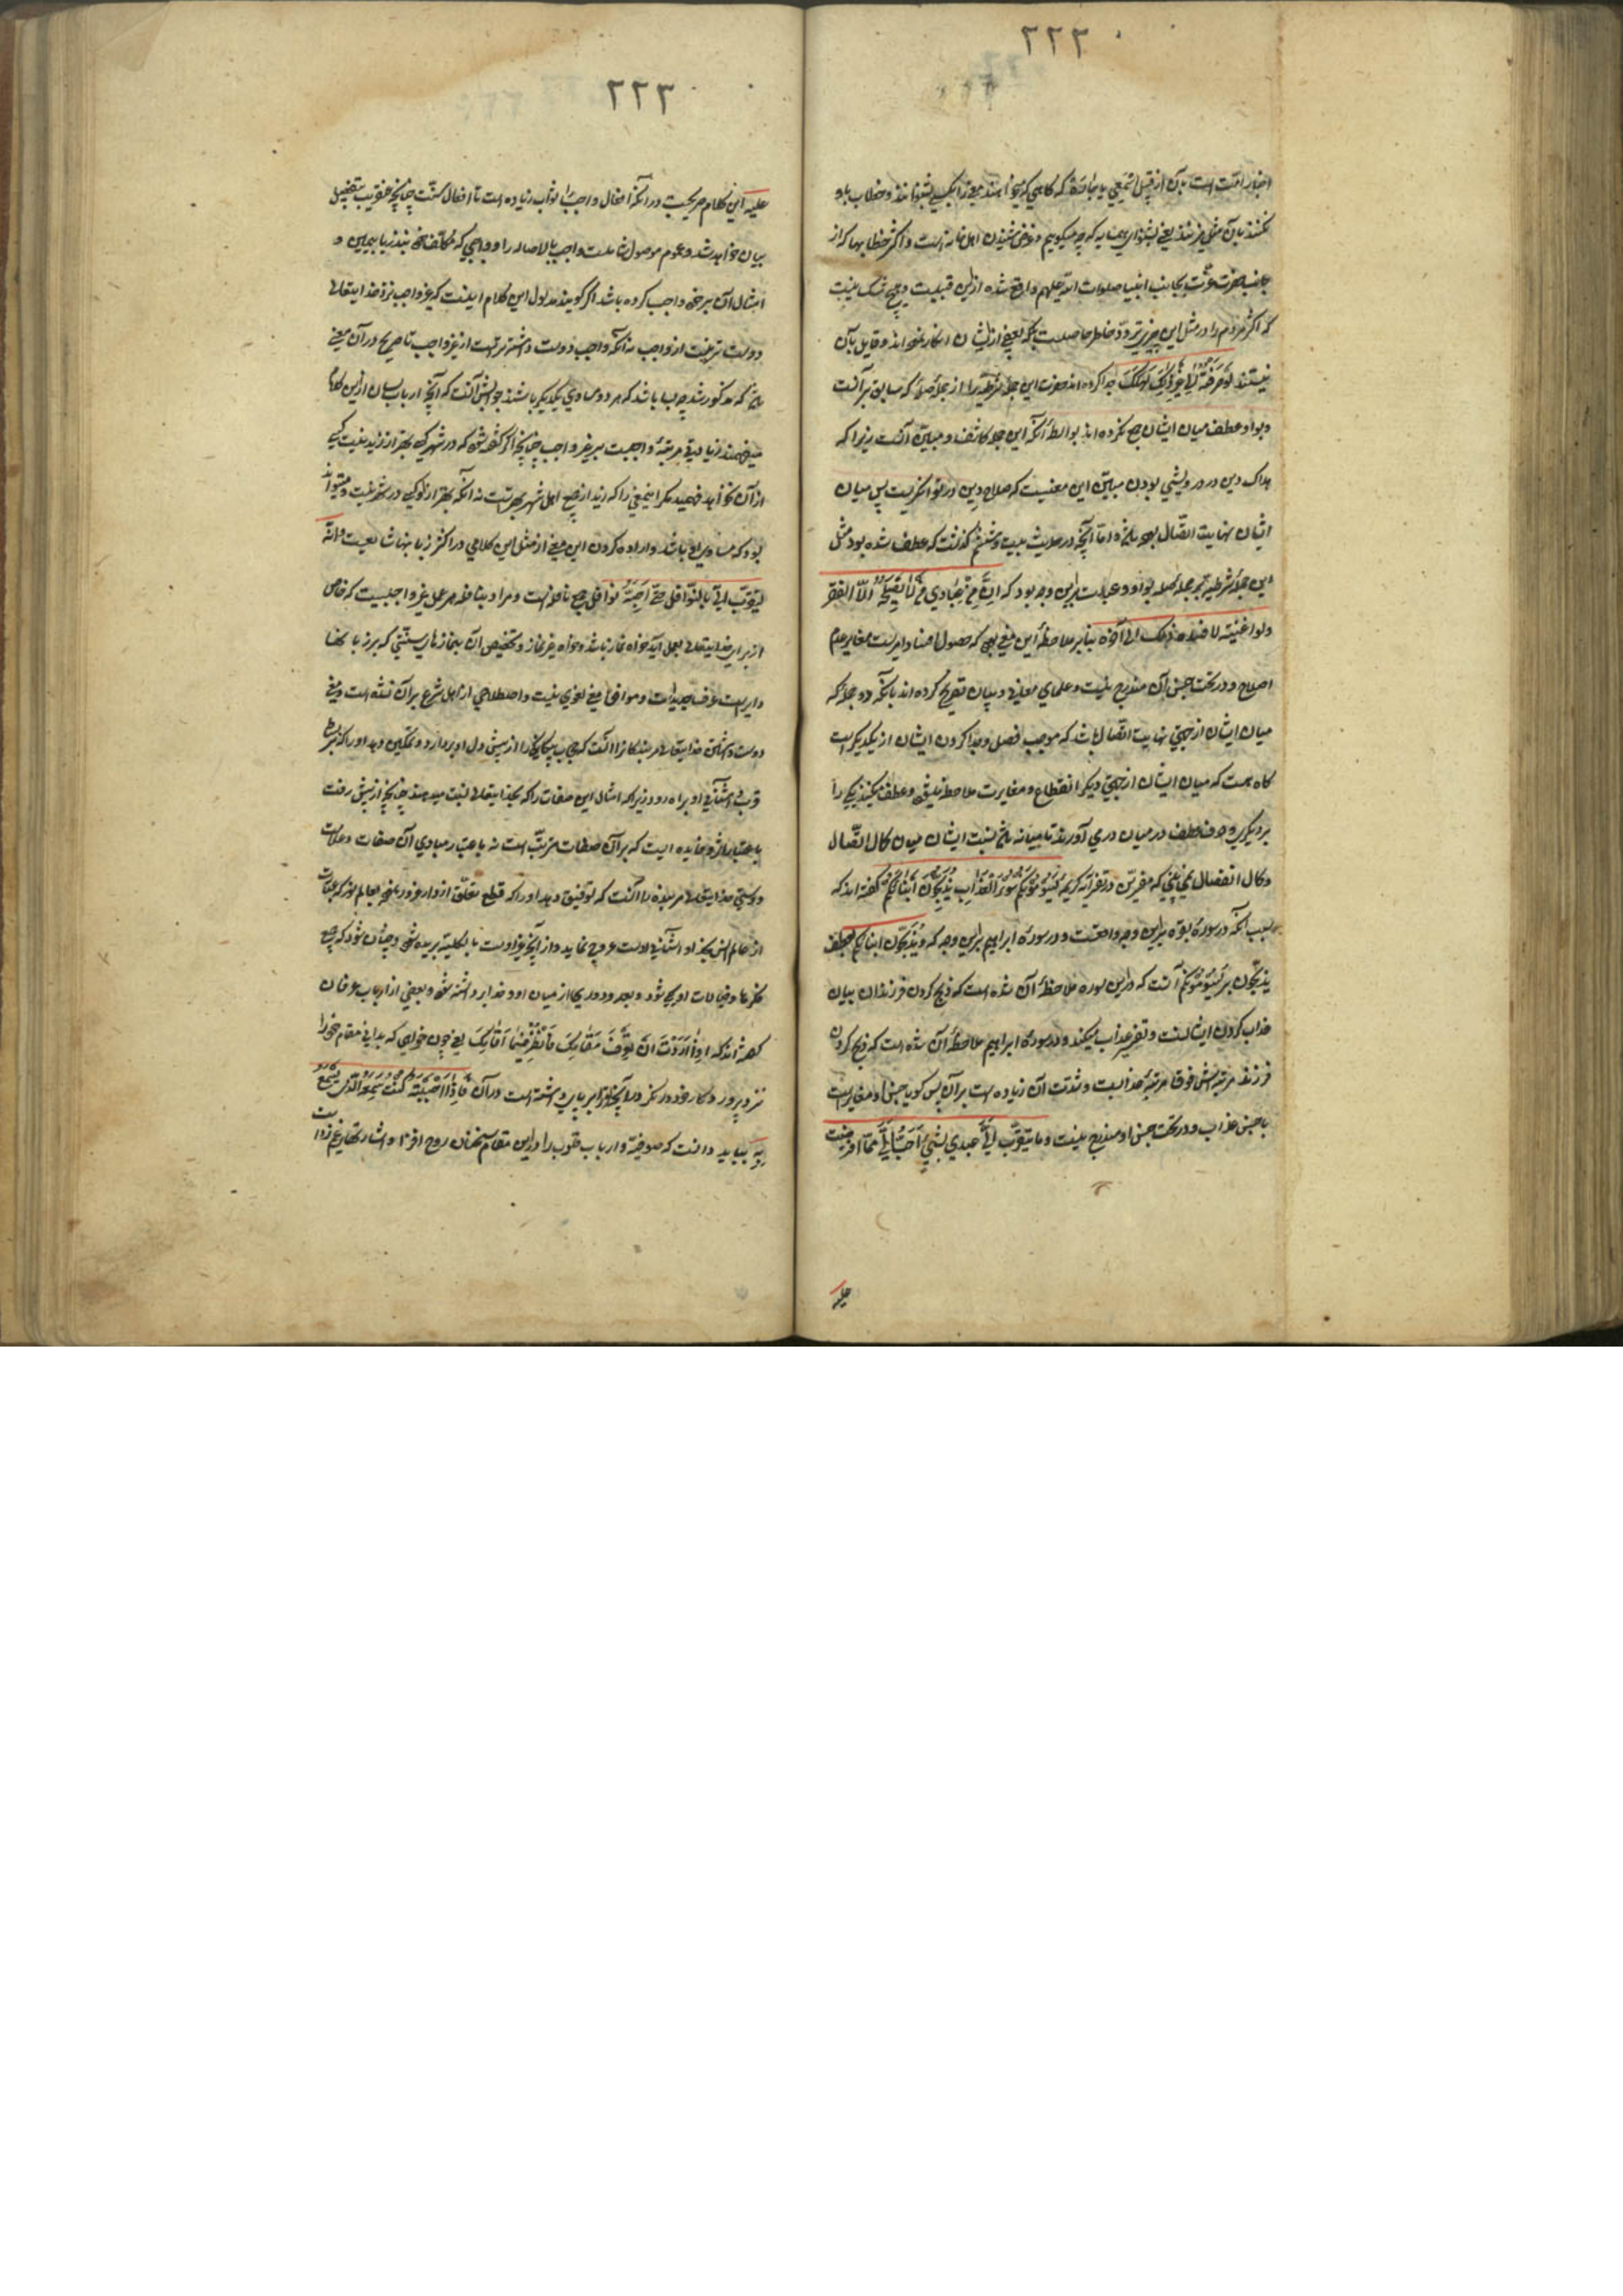 ۲۲۳
اخبار امّت است بآن از قبیل اسمعی یا جاره که کاهی که میخواهند معنی را بکسی بشنوانند و خطاب باو
نکنند بآن مثل میزنند یعنی بشنو ای همسایه که چه میکویم و غرض شنیدن اهل خانه است و اکثر خطابها که از
جانب حضرت عزّت بجانب انبیا صلوات الله علیهم واقع شده ازین قبیلست و هیچ شک نیست
که اکثر مردم را در مثل این چیزی تردّد خاطر حاصلست بلکه بعضی از ایشان انکار نموده اند و قایل بآن
نیستند لو صرفته الی غیر ذلک لهلک جدا کرده اند این جملهٔ شرطیه را از جملهٔ صله که سابق بر آنست
و بواو عطف میان ایشان جمع نکرده اند بواسطهٔ آنکه این جمله کاشف و مبیّن آنست زیرا که
هلاک دین در درویشی بودن مبیّن این معنیست که صلاح دین در توانکریست پس میان
ایشان نهایت اتّصال بهم رسیده و امّا آنچه در حدیث بیست و ششم کذشت که عطف شده بود مثل
این جملهٔ شرطیه بر جملهٔ صله بواو و عبارت براین وجه بود که انّ من عبادی من لا یصلحه الّا الفقر
ولو اغنیته لافسده ذلک الی آخره بنابر ملاحظهٔ این معنی بود که حصول فساد امریست مغایر عدم
اصلاح و در تحت جنس آن مندرج نیست و علمای معانی و بیان تصریح کرده اند بآنکه دو جمله که
میان ایشان از جهتی نهایت اتّصال باشد که موجب فصل و جدا کردن ایشان از یکدیکر است
کاه هست که میان ایشان از جهتی دیکر انقطاع و مغایرت ملاحظه میشود و عطف میکنند یکی را
بر دیکری و حرف عطف در میان درمی آورند تا میانه باشد نسبت ایشان میان کمال اتّصال
و کمال انفصال همچنانچه مفسّرین در تفسیر آیهٔ کریمه یسومونکم سوء العذاب یذبّحون ابناءکم کفته اند که
سبب آنکه در سورهٔ بقره براین وجه واقعست و در سورهٔ ابراهیم براین وجه که و یذبّحون ابناءکم بعطف
یذبّحون بر یسومونکم آنست که دراین سوره ملاحظهٔ آن شده است که ذبح کردن فرزندان بیان
عذاب کردن ایشانست و تفسیر عذاب میکند و در سورهٔ ابراهیم ملاحظهٔ آن شده است که ذبح کردن
فرزند مرتبه اش فوق مرتبهٔ عذابست و شدّت آن زیاده است برآن پس کویا جنس او مغایر است
با جنس عذاب و در تحت جنس او مندرج نیست و ما یتقرّب الیّ عبدی بشیء احبّ الیّ ممّا افترضت
علیه
۲۲۳
علیه این کلام صریحست در آنکه افعال واجب را ثواب زیاده است تا افعال سنّت چنانچه عنقریب بتفصیل
بیان خواهد شد و عموم موصول شاملست واجب بالاصاله را و واجبی که مکلّف بر خود بنذر یا بیمین و
امثال آن بر خود واجب کرده باشد اکر کویند مدلول این کلام اینست که غیر واجب نزد خدایتعالی
دوست تر نیست از واجب نه آنکه واجب دوست داشته تر است از غیر واجب تا صریح در آن معنی
باشد که مذکور شد چه میباشد که هر دو مساوی یکدیکر باشند جوابش آنست که آنچه ارباب لسان ازین کلام
میفهمند زیادتی مرتبهٔ واجبست بر غیر واجب چنانچه اکر کفته شود که در شهر کسی بهتر از زید نیست کسی
از آن نخواهد فهمید مکر این معنی را که زید از جمیع اهل شهر بهتر است نه آنکه بهتر از او کسی در شهر نیست و میتواند
بود که مساوی او باشد و اراده کردن این معنی از مثل این کلامی در اکثر زبانها شایعست و انّه
لیتقرّب الیّ بالنّوافل حتّی احبّه نوافل جمع نافله است و مراد بنافله هر عمل غیر واجبیست که خاص
از برای خدایتعالی بعمل آید خواه نماز باشد و خواه غیر نماز و تخصیص آن بنمازهای سنّتی که بر زبانها
دایر است عرف جدیدیست و موافق معنی لغوی نیست و اصطلاحی از اهل شرع برآن نشده است و معنی
دوست داشتن خدایتعالی مر بندکانرا آنست که حجاب بیکانکی را از پیش دل او بردارد و تمکین دهد او را که بر بساط
قرب و آشنائی او براه رود زیرا که امثال این صفات را که بخدایتعالی نسبت میدهند چنانچه از پیش رفت
باعتبار اثر و فایده ایست که برآن صفات مترتّب است نه باعتبار مبادی آن صفات و علامت
دوستی خدایتعالی مر بنده را آنست که توفیق دهد او را که قطع تعلّق از دار غرور نموده بعالم نور که عبارت
از عالم انس بخدا و آشنائی اوست عروج نماید و از آنچه غیر اوست بالکلّیه بریده شود و چنان شود که جمیع
فکرها و خیالات او یکی شود و بعد و دوری از میان او و خدا برداشته شود و بعضی از ارباب عرفان
کفته اند که اذا اردت ان تعرف مقامک فانظر فیما اقامک یعنی چون خواهی که بدانی مقام خود را
نزد پروردکار خود در نکر درآنچه ترا برپای داشته است در آن فاذا احببته کنت سمعه الّذی یسمع
به بباید دانست که صوفیّه و ارباب قلوب را دراین مقام سخنان روح افزا و اشارتهای غم زداست